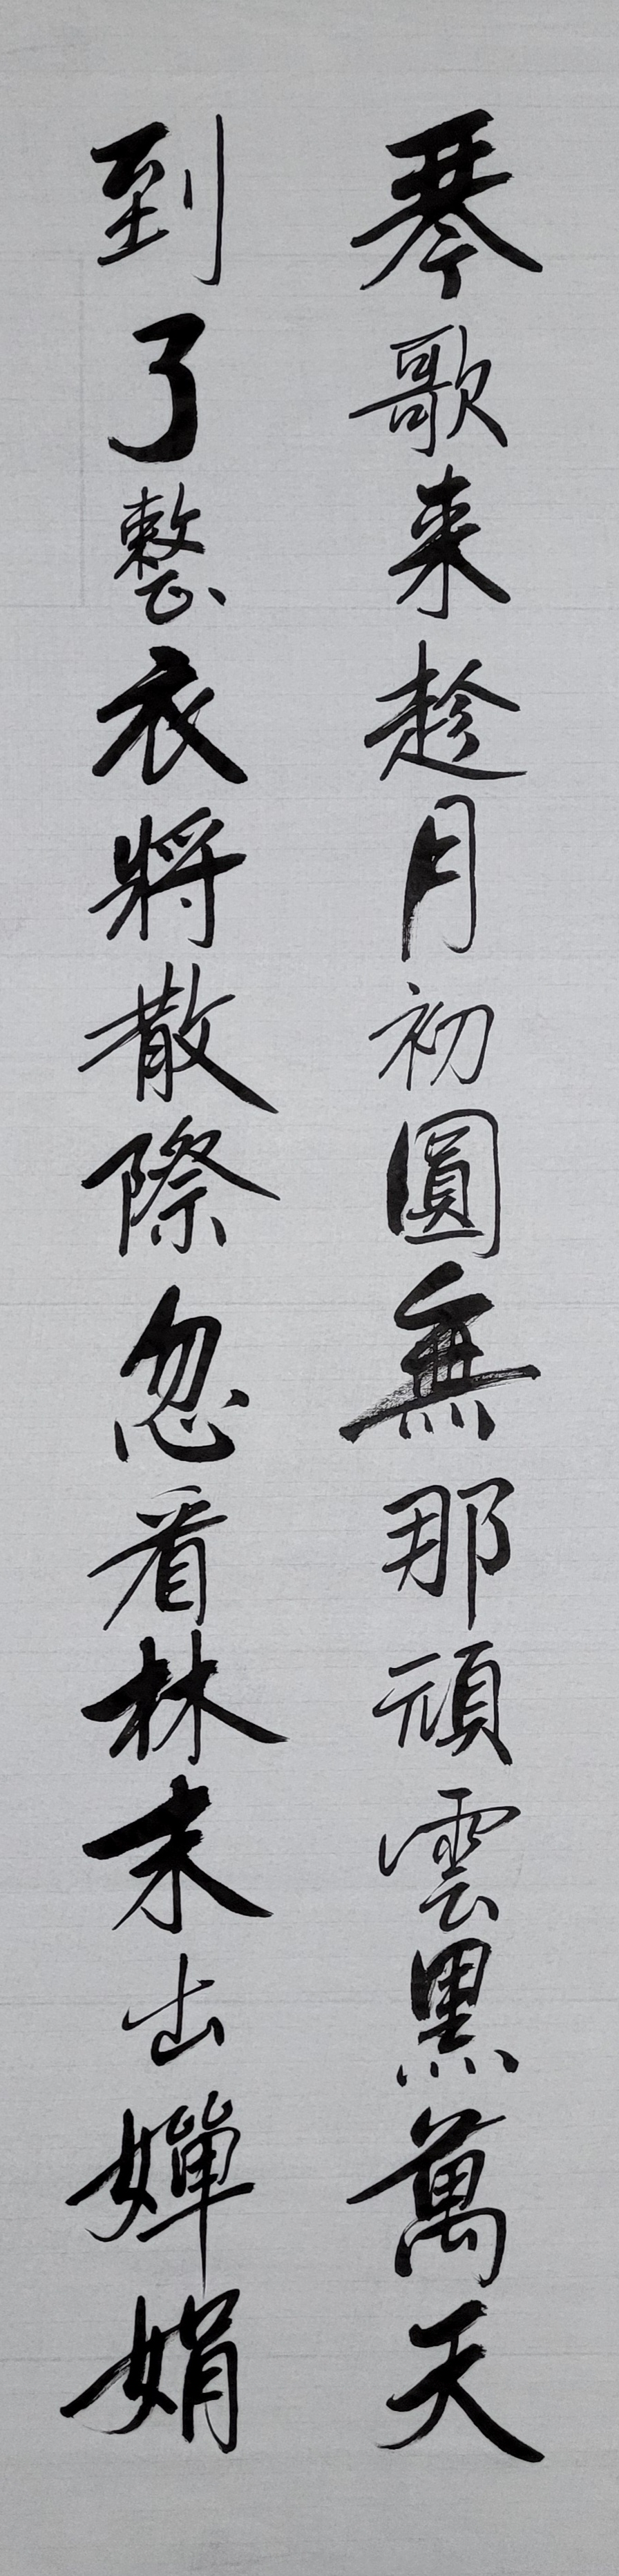 琴歌来趁月初圓無那頑雲黑萬天
到了整衣將散際忽看林末出嬋娟